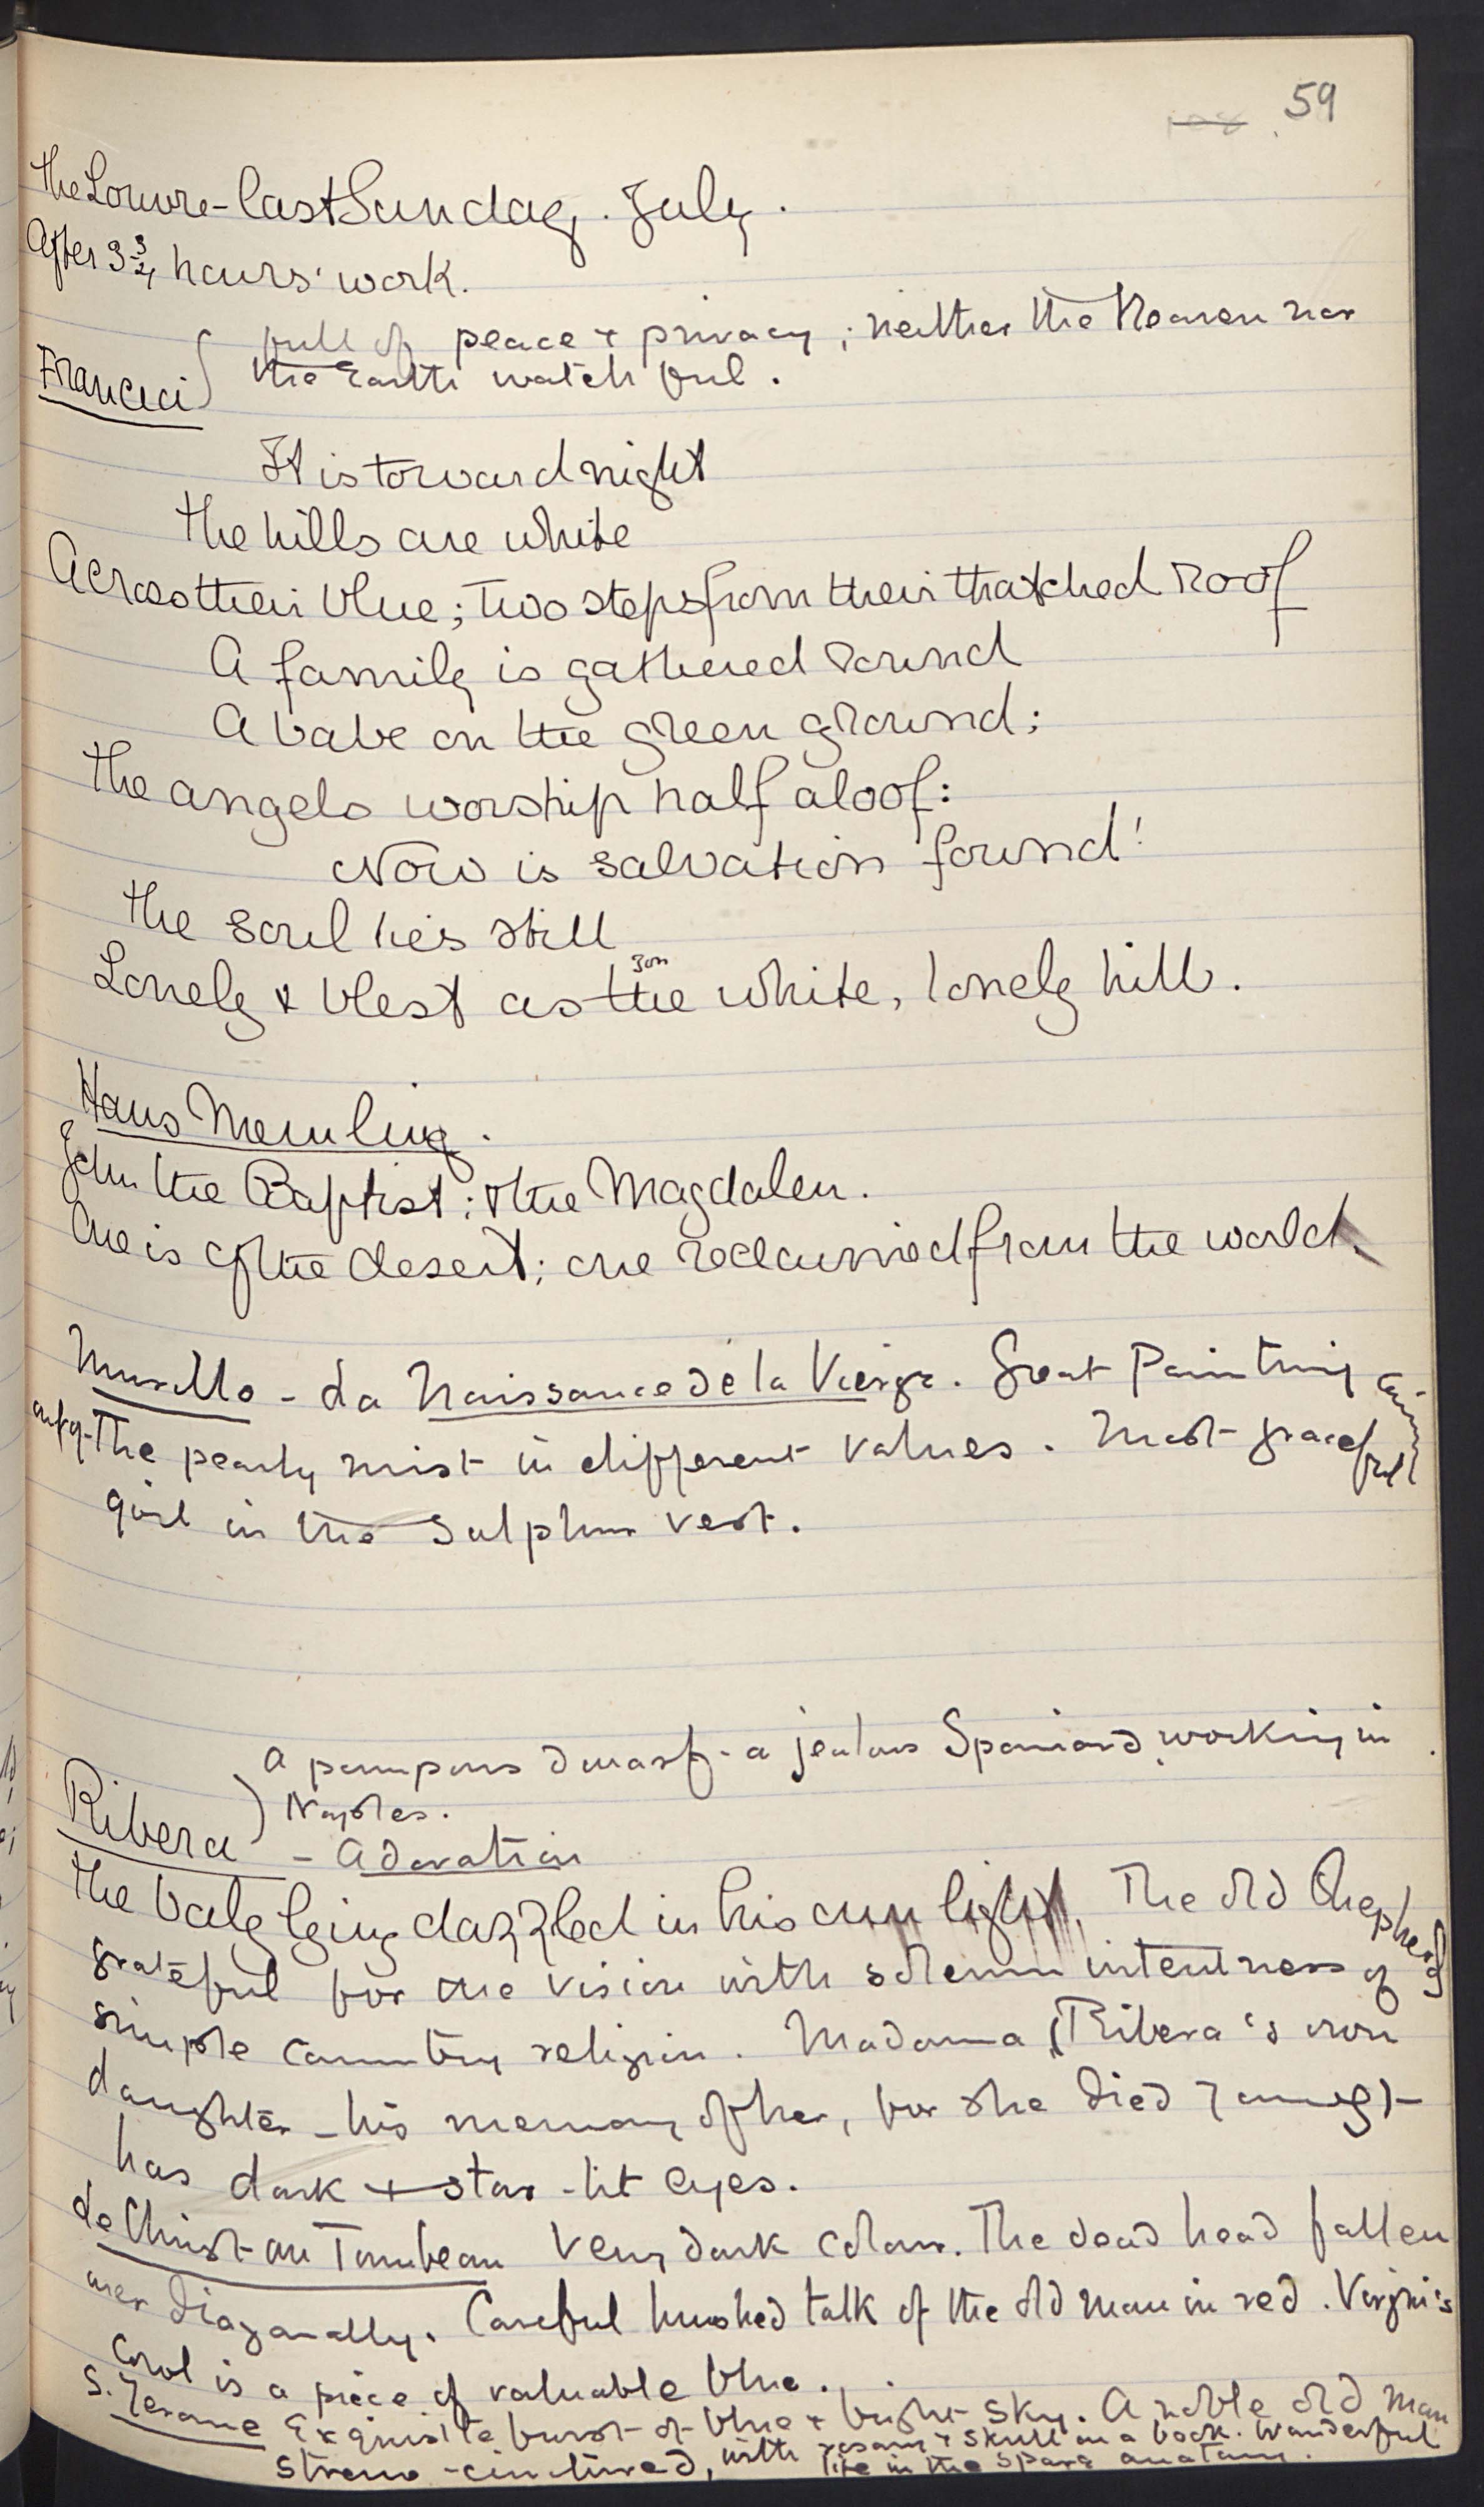 59
The Louvre - last Sunday. July.
After 3 3/4 hours' work.
full of peace + privacy; neither the Heaven nor
Francuci the Earth watchful.
It is toward night
The hills are white
Across their blue; two steps from their thatched roof
A family is gathered round
A babe on the green ground;
The angels worship half aloof:
Now is salvation found!
The soul lies still
Lonely & blest as yon the white, lonely hill.
Hans Memling.
John the Baptist: & the Magdalen.
One is of the desert; one reclaimed from the world.
Murillo - La Naissance de la Vierge. Great Painting
The pearly mist in different values. Most graceful
girl in the sulphur vest.
A pompous dwarf - a jealous Spaniard, working in
Ribera Naples.
- Adoration
The baby lying dazzled in his own light. The old Shepherd
grateful for the vision with solemn intentness of
simple country religion. Madonna (Ribera's own
daughter - his memory of her, for she died young) -
has dark + star-lit eyes.
Le Christ au Tombeau Very dark colour. The dead head fallen
over diagonally. Careful hushed talk of the old man in red. Virgin's
is a piece of valuable blue.
S. Jerome Exquisite burst of blue + bright sky. A noble old man
straw-cinctured, with rosary + skull on a book. Wonderful
life in the spare anatomy.